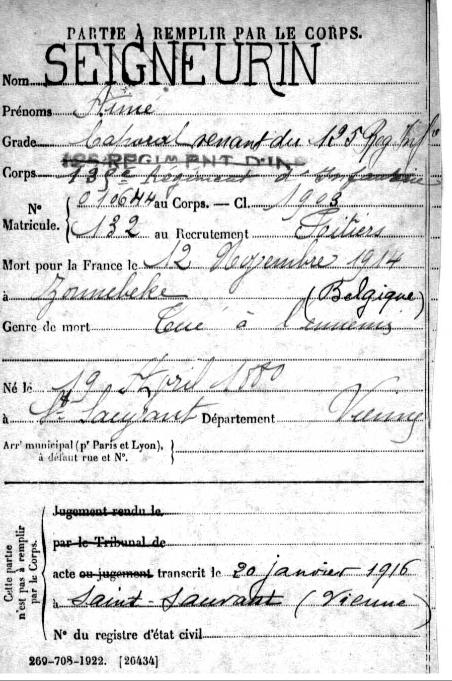 PARTIE À REMPLIR PAR LE CORPS.
Nom SEIGNEURIN
Prénoms Aimé
Grade Caporal venant du 125 Reg Inf
REGIMENT D'INF
Corps Régiment d'Infanterie
N° Matricule. 010644 au Corps. — Cl. 1903
132 au Recrutement Poitiers
Mort pour la France le 12 Novembre 1914
à Zonnebeke (Belgique)
Genre de mort Tué à l'ennemi
Né le 19 Avril 1880
à St Sauvant Département Vienne
Arrt municipal (pr Paris et Lyon),
à défaut rue et N°.
Cette partie
n'est pas à remplir
par le Corps.
Jugement rendu le
par le Tribunal de
acte ou jugement transcrit le 20 janvier 1916
à Saint-Sauvant (Vienne)
N° du registre d'état civil
269-708-1922. [26434]